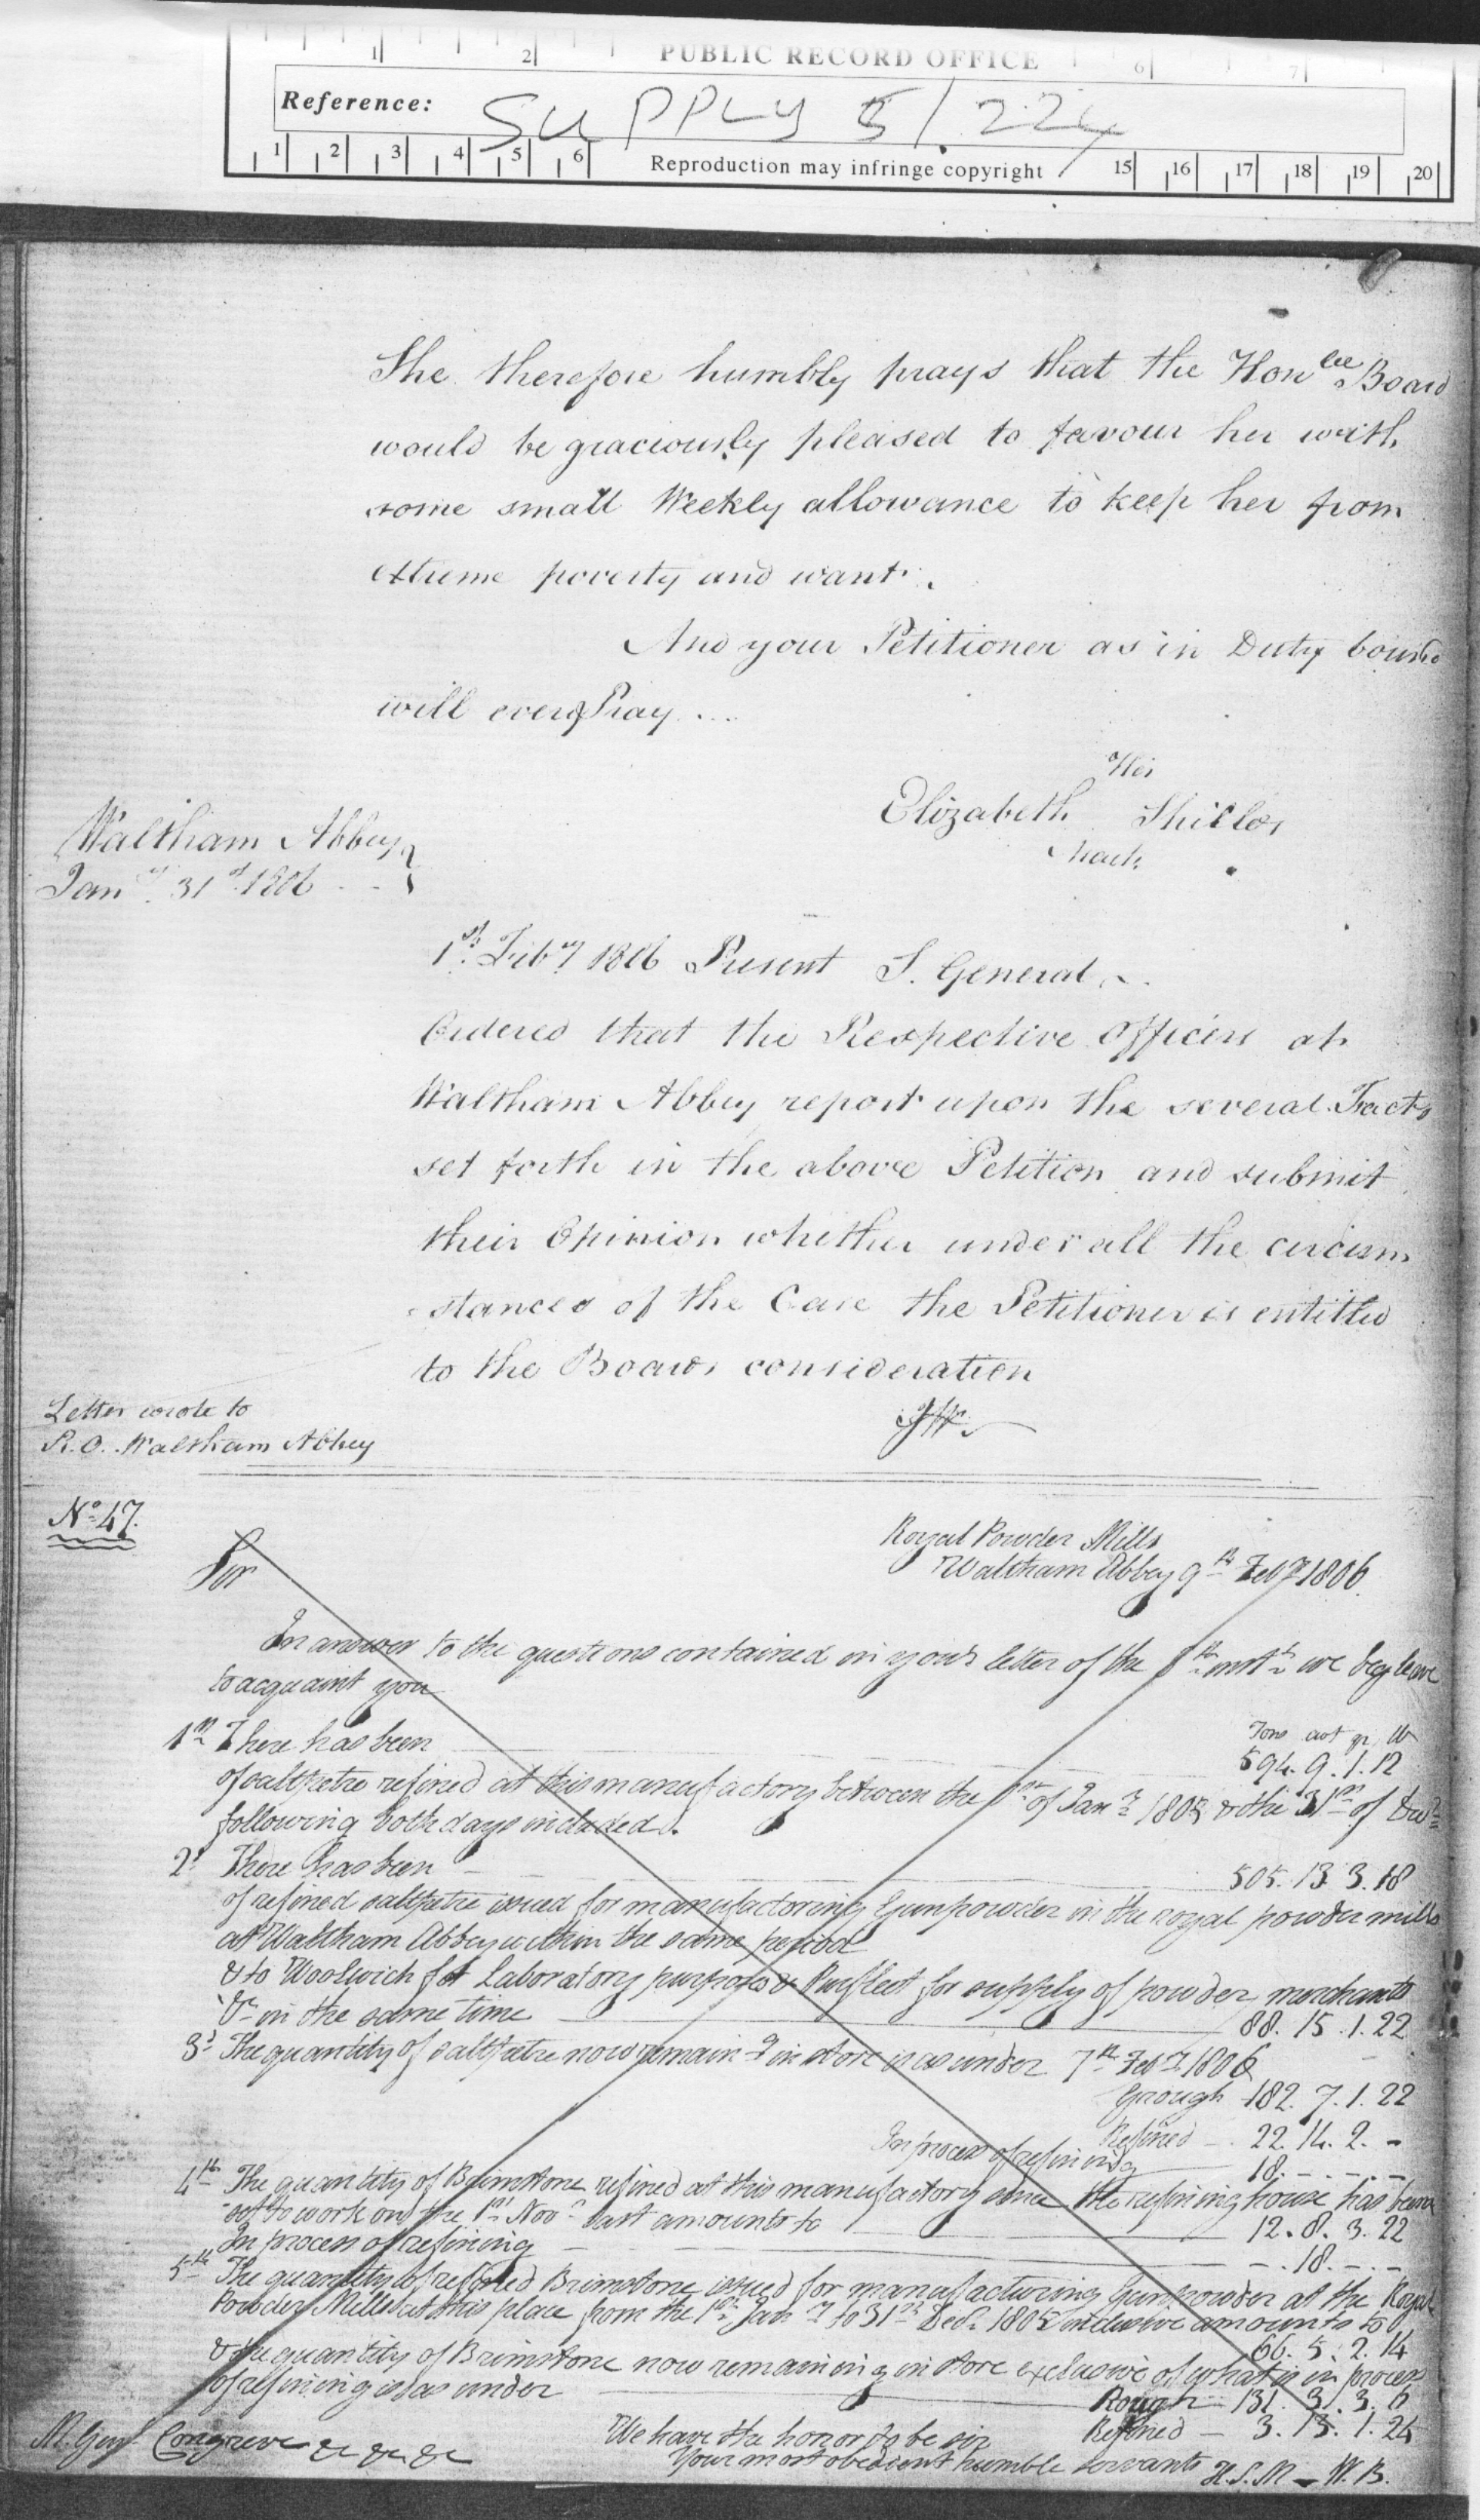 PUBLIC RECORD OFFICE
Reference: SUPPLY 5/224
Reproduction may infringe copyright
She therefore humbly prays that the Honble Board
would be graciously pleased to favour her with
some small Weekly allowance to keep her from
extreme poverty and want.
And your Petitioner as in Duty bound
will ever Pray ...
Her
Elizabeth Shillos
Mark
Waltham Abbey
Jany 31st 1806
1st Feby 1806 Present S. General
Ordered that the Respective Officers at
Waltham Abbey report upon the several Facts
set forth in the above Petition and submit
their Opinion whether under all the circum
stances of the Case the Petitioner is entitled
to the Boards consideration
Letter wrote to
R.O. Waltham Abbey
No 47.
Royal Powder Mills
Waltham Abbey 9th Feby 1806
Sir
In answer to the questions contained in your letter of the 8th instt we beg leave
to acquaint you
Tons cwt qr lb
1st There has been 594. 9. 1. 12
of saltpetre refined at this manufactory between the 1st of Jany 1805 & the 31st of Decr
following both days included.
2d There has been 505. 13. 3. 18
of refined saltpetre issued for manufactoring Gunpowder in the royal powder mills
at Waltham Abbey within the same period
& to Woolwich for Laboratory purposes & Purfleet for supply of powder merchants
&c in the same time 88. 15. 1. 22
3d The quantity of saltpetre now remaing in store is as under 7th Feby 1806
Grough 182. 7. 1. 22
Refined 22. 14. 2. -
In process of refining 18. - . - . -
4th The quantity of Brimstone refined at this manufactory since the refining house has been
set to work on the 1st Novr last amounts to 12. 8. 3. 22
In process of refining - . 18. - . -
5th The quantity of refined Brimstone issued for manufacturing Gunpowder at the Royal
Powder Mills at this place from the 1st Jany to 31st Decr 1805 inclusive amounts to
66. 5. 2. 14
& the quantity of Brimstone now remaining in store exclusive of what is in process
of refining is as under
Rough 131. 3. 3. 6
Refined - 3. 13. 1. 24
We have the honor to be sir
Your most obedient humble servants
H.S.M - W.B.
M. Genl Congreve &c &c &c